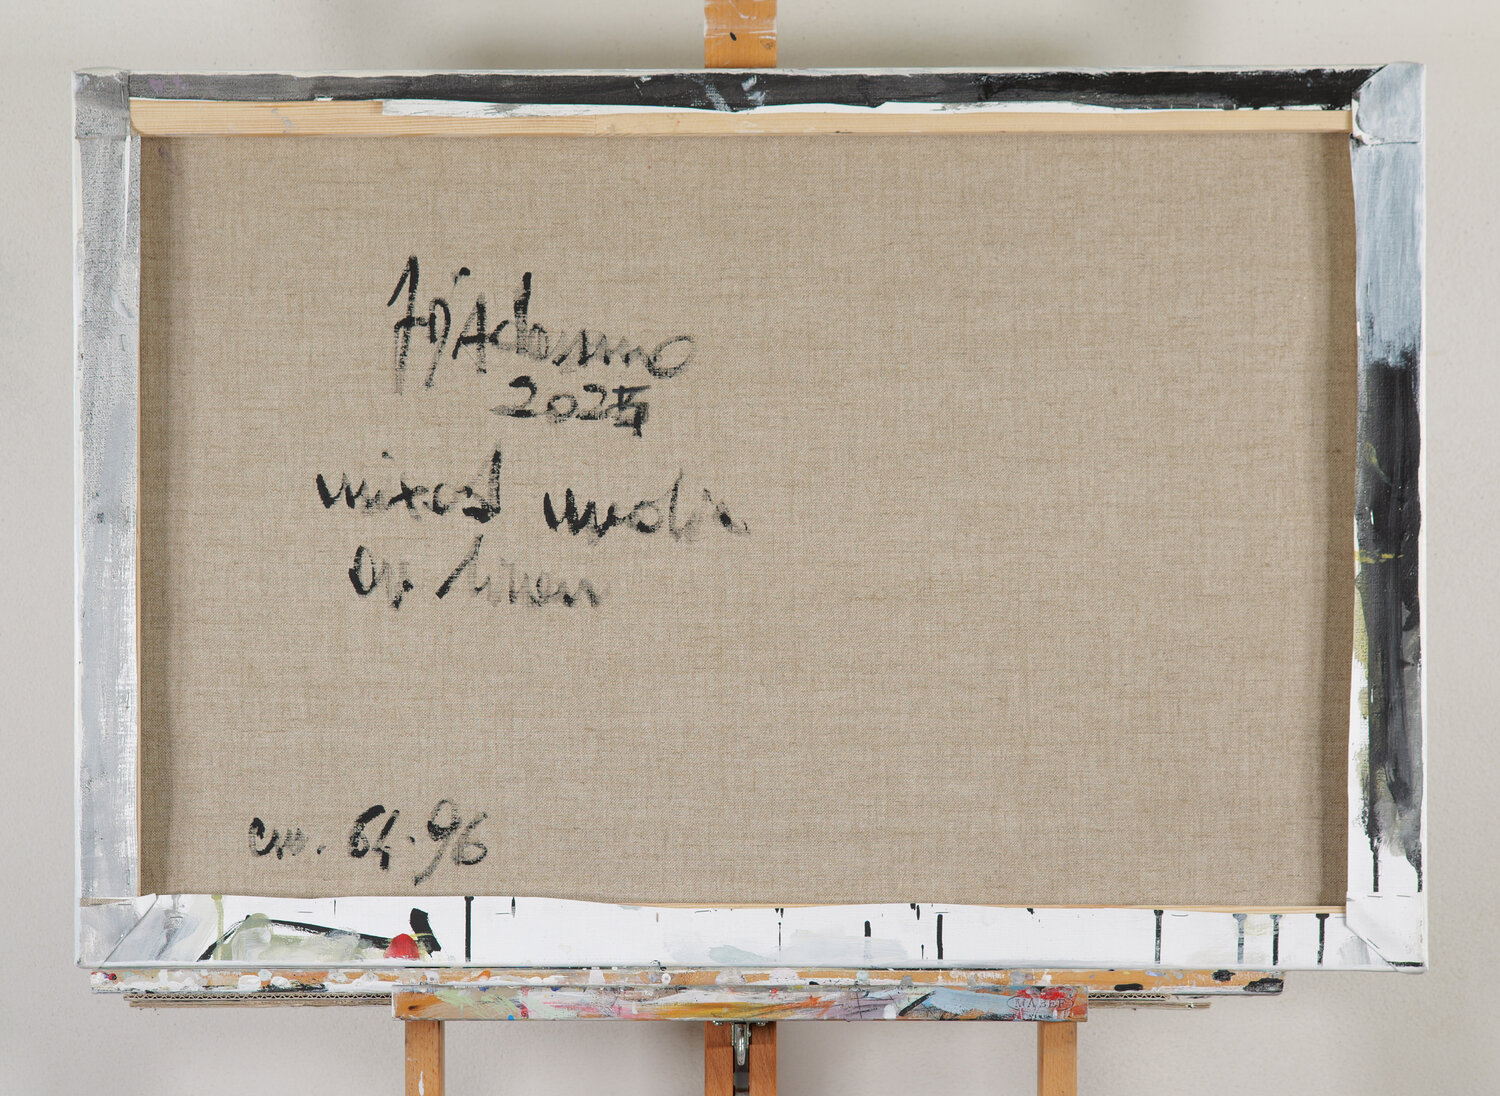 mixed media
on linen
cm. 64.96
MABEF